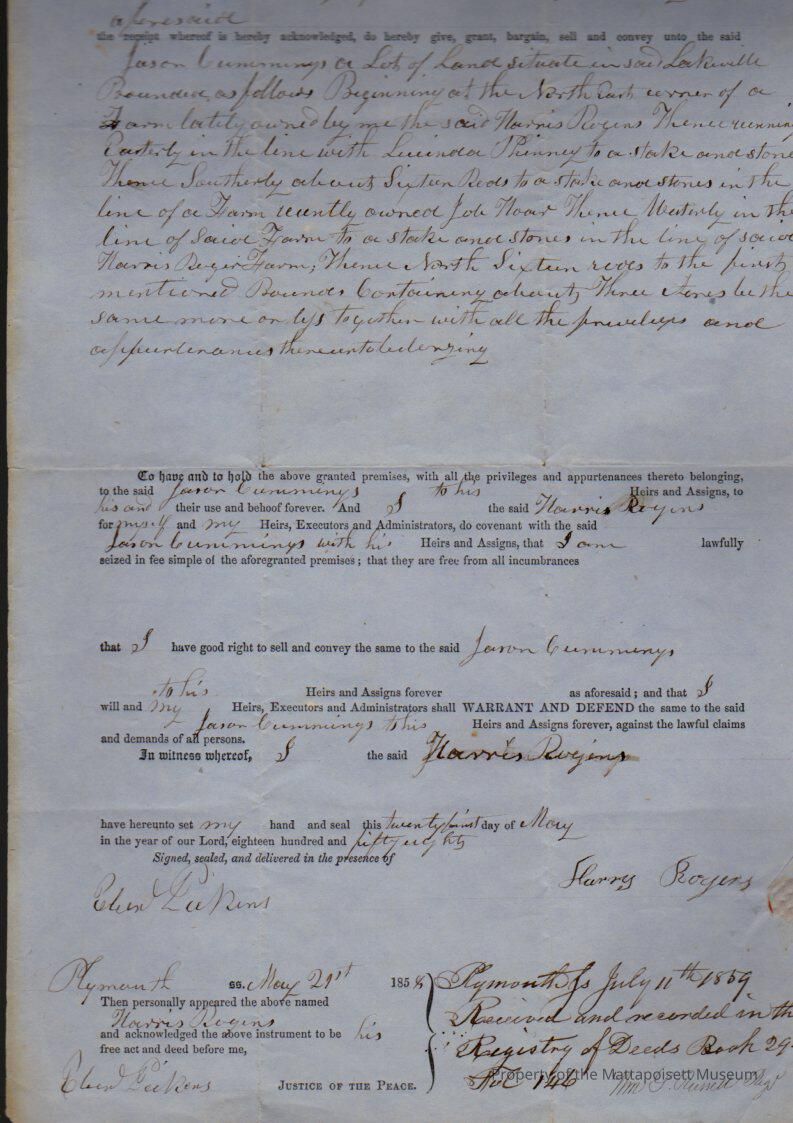 aforesaid
the receipt whereof is hereby acknowledged, do hereby give, grant, bargain, sell and convey unto the said
Jason Cummings a Lot of Land situate in said Lakeville
Bounded as follows Beginning at the North East corner of a
Farm lately owned by me the said Harris Rogers Thence running
Easterly in the line with Lucinda Phinney to a stake and stone
Thence Southerly about Sixteen Rods to a stake and stones in the
line of a Farm recently owned Job Hoar Thence Westerly in the
line of Said Farm to a stake and stones in the line of said
Harris Roger Farm, Thence North Sixteen rods to the first
mentioned Bounds Containing about Three Acres be the
same more or less together with all the privileges and
appurtenances thereunto belonging
To have and to hold the above granted premises, with all the privileges and appurtenances thereto belonging,
to the said Jason Cummings to his Heirs and Assigns, to
his and their use and behoof forever. And I the said Harris Rogers
for myself and my Heirs, Executors and Administrators, do covenant with the said
Jason Cummings with his Heirs and Assigns, that I am lawfully
seized in fee simple of the aforegranted premises; that they are free from all incumbrances
that I have good right to sell and convey the same to the said Jason Cummings
to his Heirs and Assigns forever as aforesaid; and that I
will and my Heirs, Executors and Administrators shall WARRANT AND DEFEND the same to the said
Jason Cummings to his Heirs and Assigns forever, against the lawful claims
and demands of all persons.
In witness whereof, I the said Harris Rogers
have hereunto set my hand and seal this twenty first day of May
in the year of our Lord, eighteen hundred and fifty eight
Signed, sealed, and delivered in the presence of
Harris Rogers
Eben Pickens
Plymouth ss. May 21st 1858
Then personally appeared the above named
Harris Rogers
and acknowledged the above instrument to be his
free act and deed before me,
Eben Pickens JUSTICE OF THE PEACE.
Plymouth Ss July 11th 1859
Received and recorded in the
Registry of Deeds Book 29
Fol 146
Wm S. Russell Regr
Property of the Mattapoisett Museum